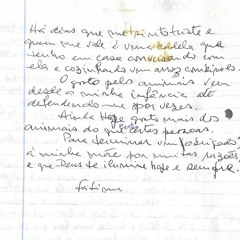 Há dias que me sinto triste e
quem me vale é uma cadela que
tenho em casa conversando com
ela e cozinhando um arroz
O gosto pelos animais vem
desde a minha infância até
defendendo-me por vezes.
Ainda Hoje gosto mais dos
animais do que certas pessoas.
Para terminar um
à minha mãe por muitas razões
e que Deus te ilumine hoje e sempre.
Fátima